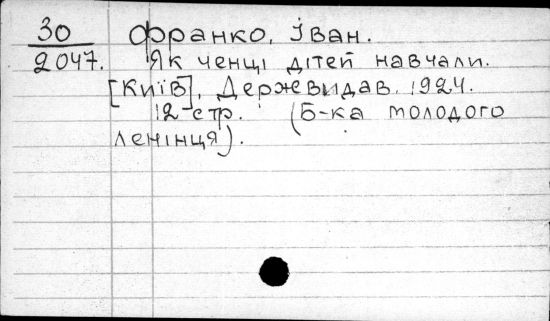 30 Франко, Іван.
2047. Як ченці дітей навчали.
[Київ], Держевидав. 1924.
12 стр. (Б-ка молодого
ленінця).